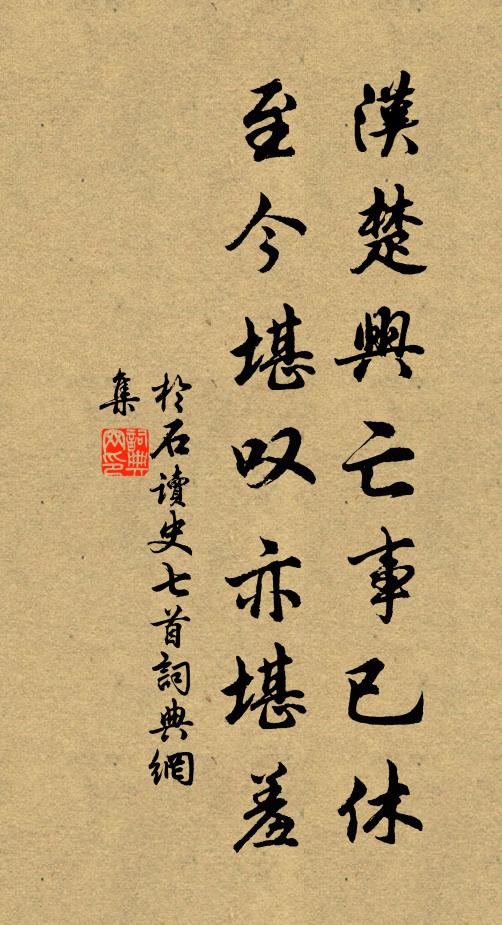 漢楚興亡事已休
至今堪叹亦堪羞
於石讀史七首詞典網
集
詞典
网印